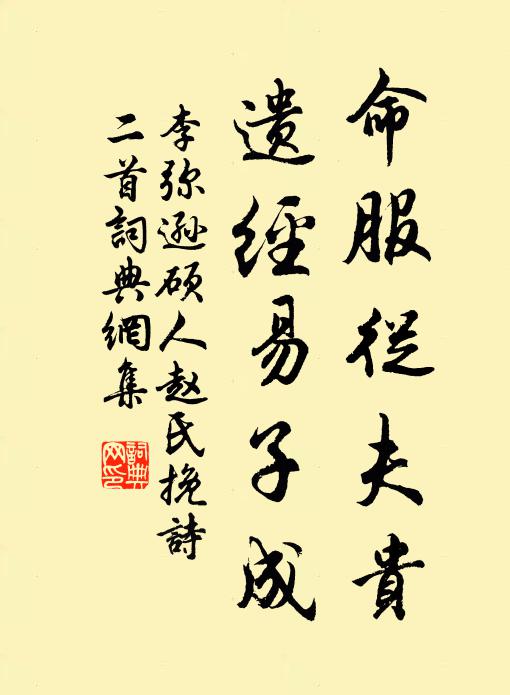 命服從夫貴
遺經易子成
李弥遜硕人赵氏挽詩
二首詞典網集
詞典
网印